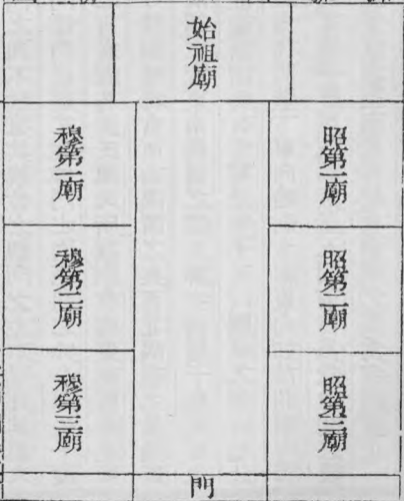 始祖廟
昭第一廟
昭第二廟
昭第三廟
穆第一廟
穆第二廟
穆第三廟
門